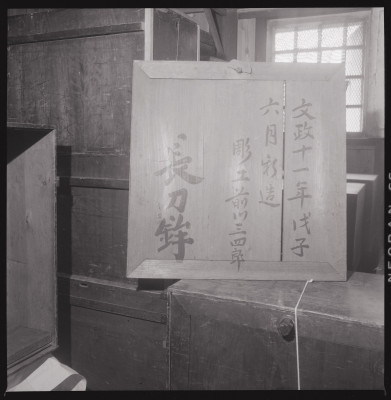 文政十一年戊子
六月新造
彫工前川三四郎
長刀鉾